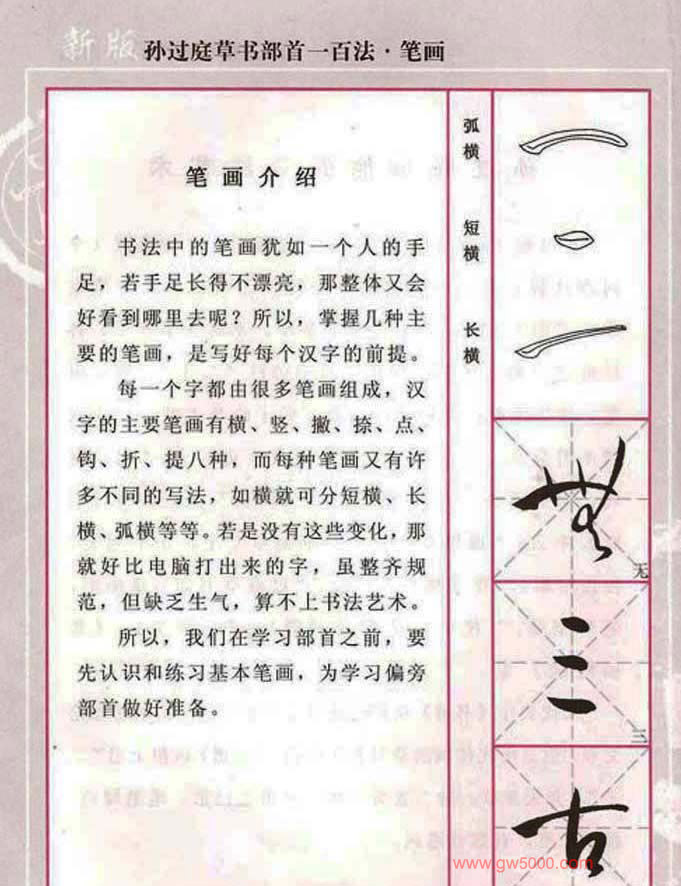 新版 孙过庭草书部首一百法·笔画
笔画介绍
书法中的笔画犹如一个人的手
足，若手足长得不漂亮，那整体又会
好看到哪里去呢？所以，掌握几种主
要的笔画，是写好每个汉字的前提。
每一个字都由很多笔画组成，汉
字的主要笔画有横、竖、撇、捺、点、
钩、折、提八种，而每种笔画又有许
多不同的写法，如横就可分短横、长
横、弧横等等。若是没有这些变化，那
就好比电脑打出来的字，虽整齐规
范，但缺乏生气，算不上书法艺术。
所以，我们在学习部首之前，要
先认识和练习基本笔画，为学习偏旁
部首做好准备。
弧横
短横
长横
无
三
三
古
www.gw5000.com